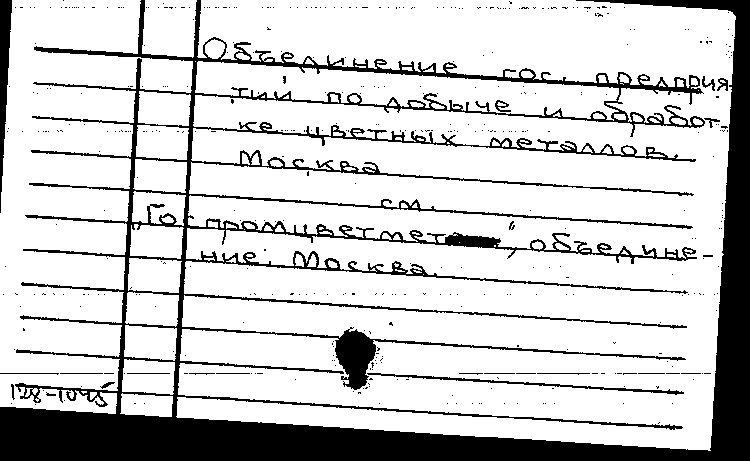 Объединение гос. предприя-
тий по добыче и обработ-
ке цветных металлов.
Москва
см.
„Госпромцветмет“, объедине-
ние. Москва.
128-1045